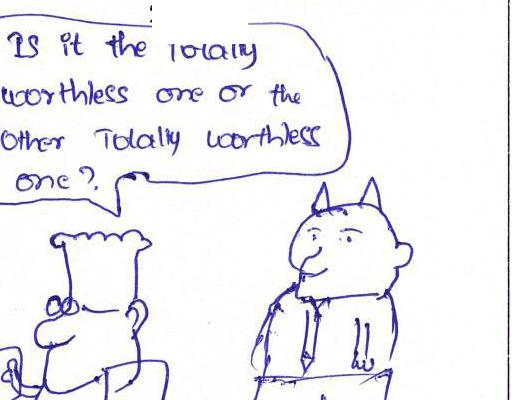 Is it the Totally
worthless one or the
Other Totally worthless
one?